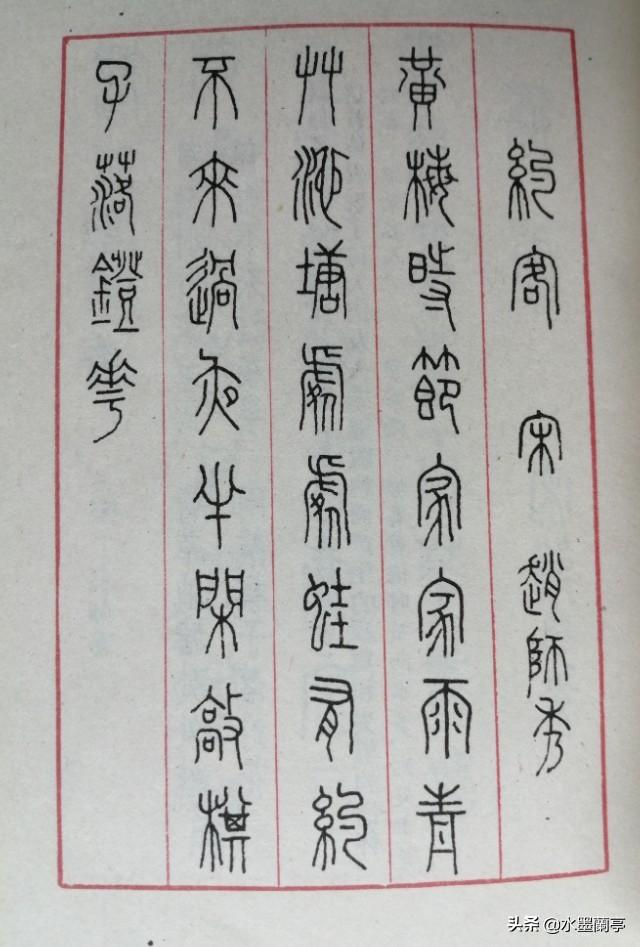 約客 宋 趙師秀
黃梅時節家家雨青
艸池塘處處蛙有約
不來過夜半閑敲棋
子落鐙花
头条 @水墨蘭亭